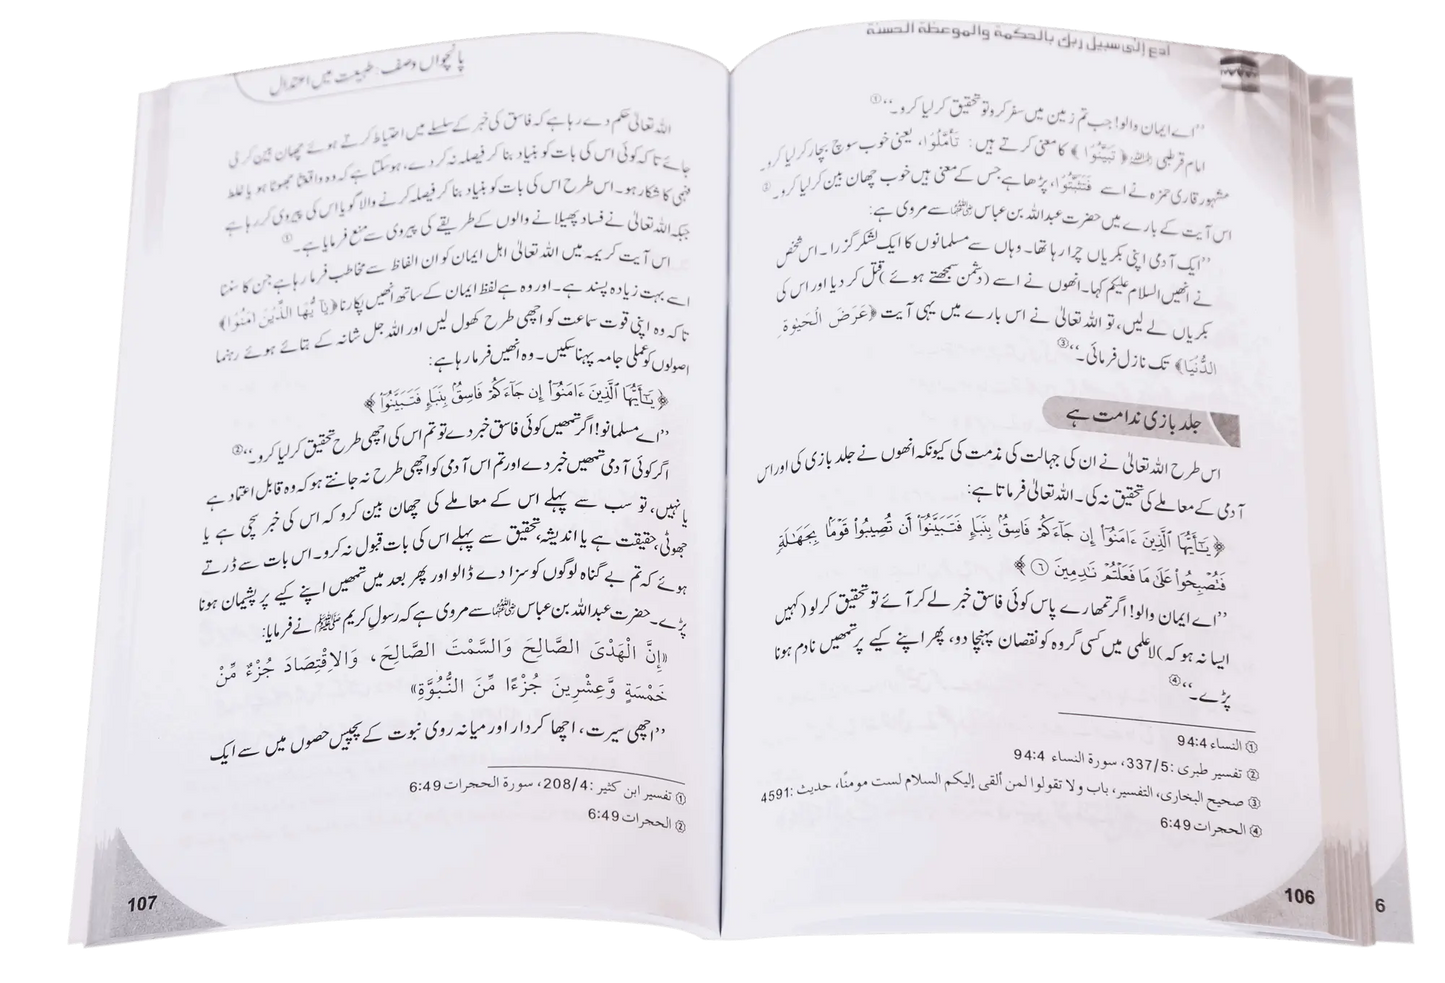 ادع إلى سبيل ربك بالحكمة والموعظة الحسنة
’’اے ایمان والو! جب تم زمین میں سفر کرو تو تحقیق کر لیا کرو۔‘‘①
امام قرطبی رحمہ اللہ ﴿تَبَيَّنُوْا﴾ کا معنی کرتے ہیں: تَأَمَّلُوْا، یعنی خوب سوچ بچار کر لیا کرو۔
مشہور قاری حمزہ نے اسے فَتَثَبَّتُوْا، پڑھا ہے جس کے معنی ہیں خوب چھان بین کر لیا کرو۔②
اس آیت کے بارے میں حضرت عبداللہ بن عباس رضی اللہ عنہما سے مروی ہے:
’’ایک آدمی اپنی بکریاں چرا رہا تھا۔ وہاں سے مسلمانوں کا ایک لشکر گزرا۔ اس شخص
نے انھیں السلام علیکم کہا۔ انھوں نے اسے (دشمن سمجھتے ہوئے) قتل کر دیا اور اس کی
بکریاں لے لیں، تو اللہ تعالیٰ نے اس بارے میں یہی آیت ﴿عَرَضَ الْحَيٰوةِ
الدُّنْيَا﴾ تک نازل فرمائی۔‘‘③
جلد بازی ندامت ہے
اس طرح اللہ تعالیٰ نے ان کی جہالت کی مذمت کی کیونکہ انھوں نے جلد بازی کی اور اس
آدمی کے معاملے کی تحقیق نہ کی۔ اللہ تعالیٰ فرماتا ہے:
﴿يَٰٓأَيُّهَا ٱلَّذِينَ ءَامَنُوٓا۟ إِن جَآءَكُمْ فَاسِقٌۢ بِنَبَإٍ فَتَبَيَّنُوٓا۟ أَن تُصِيبُوا۟ قَوْمًۢا بِجَهَٰلَةٍ
فَتُصْبِحُوا۟ عَلَىٰ مَا فَعَلْتُمْ نَٰدِمِينَ ٦﴾
’’اے ایمان والو! اگر تمھارے پاس کوئی فاسق خبر لے کر آئے تو تحقیق کر لو (کہیں
ایسا نہ ہو کہ) لاعلمی میں کسی گروہ کو نقصان پہنچا دو، پھر اپنے کیے پر تمھیں نادم ہونا
پڑے۔‘‘④
① النساء 94:4
② تفسیر طبری :337/5، سورة النساء 94:4
③ صحیح البخاری، التفسیر، باب ولا تقولوا لمن ألقى إليكم السلام لست مومنًا، حدیث :4591
④ الحجرات 6:49
106
6
پانچواں وصف : طبیعت میں اعتدال
اللہ تعالیٰ حکم دے رہا ہے کہ فاسق کی خبر کے سلسلے میں احتیاط کرتے ہوئے چھان بین کر لی
جائے تاکہ کوئی اس کی بات کو بنیاد بنا کر فیصلہ نہ کر دے، ہو سکتا ہے کہ وہ واقعتاً جھوٹا ہو یا غلط
فہمی کا شکار ہو۔ اس طرح اس کی بات کو بنیاد بنا کر فیصلہ کرنے والا گویا اس کی پیروی کر رہا ہے
جبکہ اللہ تعالیٰ نے فساد پھیلانے والوں کے طریقے کی پیروی سے منع فرمایا ہے۔①
اس آیت کریمہ میں اللہ تعالیٰ اہل ایمان کو ان الفاظ سے مخاطب فرما رہا ہے جن کا سننا
اسے بہت زیادہ پسند ہے۔ اور وہ ہے لفظ ایمان کے ساتھ انھیں پکارنا ﴿يٰٓاَيُّهَا الَّذِيْنَ اٰمَنُوْا﴾
تاکہ وہ اپنی قوت سماعت کو اچھی طرح کھول لیں اور اللہ جل شانہ کے بتائے ہوئے رہنما
اصولوں کو عملی جامہ پہنا سکیں۔ وہ انھیں فرما رہا ہے:
﴿يَٰٓأَيُّهَا ٱلَّذِينَ ءَامَنُوٓا۟ إِن جَآءَكُمْ فَاسِقٌۢ بِنَبَإٍ فَتَبَيَّنُوٓا۟﴾
’’اے مسلمانو! اگر تمھیں کوئی فاسق خبر دے تو تم اس کی اچھی طرح تحقیق کر لیا کرو۔‘‘②
اگر کوئی آدمی تمھیں خبر دے اور تم اس آدمی کو اچھی طرح نہ جانتے ہو کہ وہ قابل اعتماد ہے
یا نہیں، تو سب سے پہلے اس کے معاملے کی چھان بین کرو کہ اس کی خبر سچی ہے یا
جھوٹی، حقیقت ہے یا اندیشہ، تحقیق سے پہلے اس کی بات قبول نہ کرو۔ اس بات سے ڈرتے
ہوئے کہ تم بے گناہ لوگوں کو سزا دے ڈالو اور پھر بعد میں تمھیں اپنے کیے پر پشیمان ہونا
پڑے۔ حضرت عبداللہ بن عباس رضی اللہ عنہما سے مروی ہے کہ رسول کریم ﷺ نے فرمایا:
«إِنَّ الْهَدْىَ الصَّالِحَ وَالسَّمْتَ الصَّالِحَ، وَالِاقْتِصَادَ جُزْءٌ مِّنْ
خَمْسَةٍ وَّعِشْرِينَ جُزْءًا مِّنَ النُّبُوَّةِ»
’’اچھی سیرت، اچھا کردار اور میانہ روی نبوت کے پچیس حصوں میں سے ایک
① تفسیر ابن کثیر :208/4، سورة الحجرات 6:49
② الحجرات 6:49
107